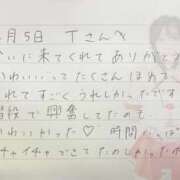 月5日 Tさんへ
いに来てくれてありがて
いわいいってたくさんほめて
れてすごくうれしかったです
階段で興奮してたので
わいかった♡ 時間たっぷ
チャイチャできてたのしかったの